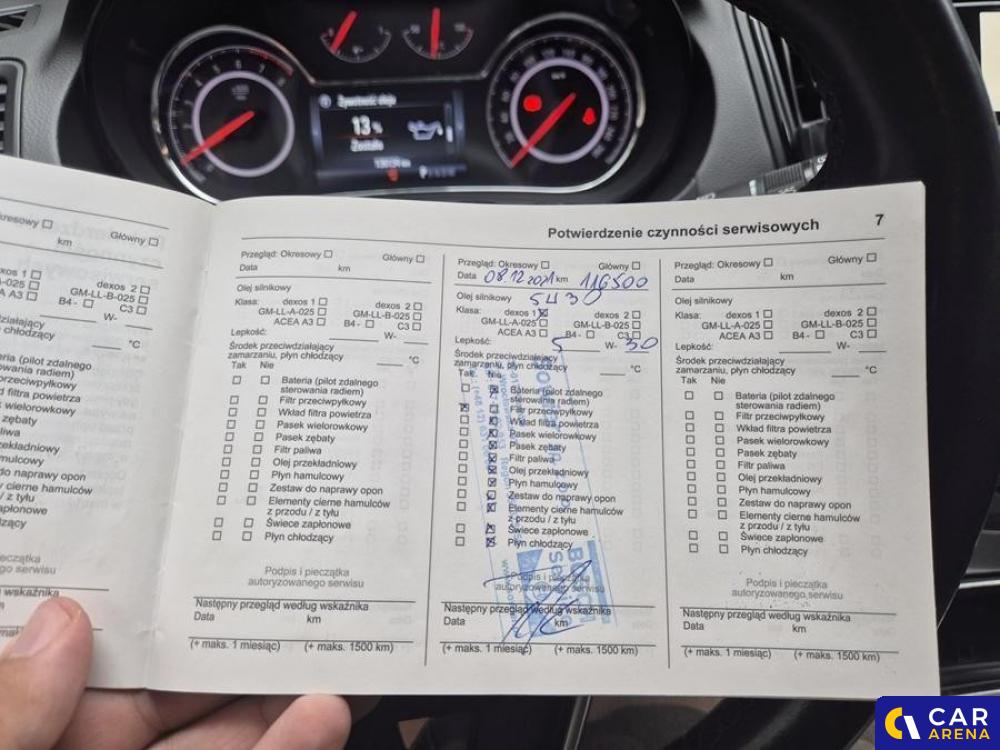 Żywotność oleju
13 %
Zostało
Potwierdzenie czynności serwisowych
7
kresowy ☐ Główny ☐
km
dexos 2 ☐
GM-LL-B-025 ☐
ACEA A3 ☐ B4 - ☐ C3 ☐
W-
°C
wskaźnika
Przegląd: Okresowy ☐ Główny ☐
Data km
Olej silnikowy
Klasa: dexos 1 ☐ dexos 2 ☐
GM-LL-A-025 ☐ GM-LL-B-025 ☐
ACEA A3 ☐ B4 - ☐ C3 ☐
Lepkość: W-
Środek przeciwdziałający
zamarzaniu, płyn chłodzący °C
Tak Nie
☐ ☐ Bateria (pilot zdalnego
sterowania radiem)
☐ ☐ Filtr przeciwpyłkowy
☐ ☐ Wkład filtra powietrza
☐ ☐ Pasek wielorowkowy
☐ ☐ Pasek zębaty
☐ ☐ Filtr paliwa
☐ ☐ Olej przekładniowy
☐ ☐ Płyn hamulcowy
☐ ☐ Zestaw do naprawy opon
☐ ☐ Elementy cierne hamulców
z przodu / z tyłu
☐ ☐ Świece zapłonowe
☐ ☐ Płyn chłodzący
Podpis i pieczątka
autoryzowanego serwisu
Następny przegląd według wskaźnika
Data km
(+ maks. 1 miesiąc) (+ maks. 1500 km)
Przegląd: Okresowy ☐ Główny ☐
Data 08.12 2021 km 116500
Olej silnikowy 5W30
Klasa: dexos 1 ☒ dexos 2 ☐
GM-LL-A-025 ☐ GM-LL-B-025 ☐
ACEA A3 ☐ B4 - ☐ C3 ☐
Lepkość: 5 W- 30
Środek przeciwdziałający
zamarzaniu, płyn chłodzący °C
Tak Nie
☐ ☒ Bateria (pilot zdalnego
sterowania radiem)
☒ ☐ Filtr przeciwpyłkowy
☐ ☒ Wkład filtra powietrza
☐ ☒ Pasek wielorowkowy
☐ ☒ Pasek zębaty
☐ ☒ Filtr paliwa
☐ ☒ Olej przekładniowy
☐ ☒ Płyn hamulcowy
☐ ☒ Zestaw do naprawy opon
☐ ☒ Elementy cierne hamulców
z przodu / z tyłu
☐ ☒ Świece zapłonowe
☐ ☒ Płyn chłodzący
Podpis i pieczątka
autoryzowanego serwisu
Następny przegląd według wskaźnika
Data km
(+ maks. 1 miesiąc) (+ maks. 1500 km)
Przegląd: Okresowy ☐ Główny ☐
Data km
Olej silnikowy
Klasa: dexos 1 ☐ dexos 2 ☐
GM-LL-A-025 ☐ GM-LL-B-025 ☐
ACEA A3 ☐ B4 - ☐ C3 ☐
Lepkość: W-
Środek przeciwdziałający
zamarzaniu, płyn chłodzący °C
Tak Nie
☐ ☐ Bateria (pilot zdalnego
sterowania radiem)
☐ ☐ Filtr przeciwpyłkowy
☐ ☐ Wkład filtra powietrza
☐ ☐ Pasek wielorowkowy
☐ ☐ Pasek zębaty
☐ ☐ Filtr paliwa
☐ ☐ Olej przekładniowy
☐ ☐ Płyn hamulcowy
☐ ☐ Zestaw do naprawy opon
☐ ☐ Elementy cierne hamulców
z przodu / z tyłu
☐ ☐ Świece zapłonowe
☐ ☐ Płyn chłodzący
Podpis i pieczątka
autoryzowanego serwisu
Następny przegląd według wskaźnika
Data km
(+ maks. 1 miesiąc) (+ maks. 1500 km)
CAR
ARENA